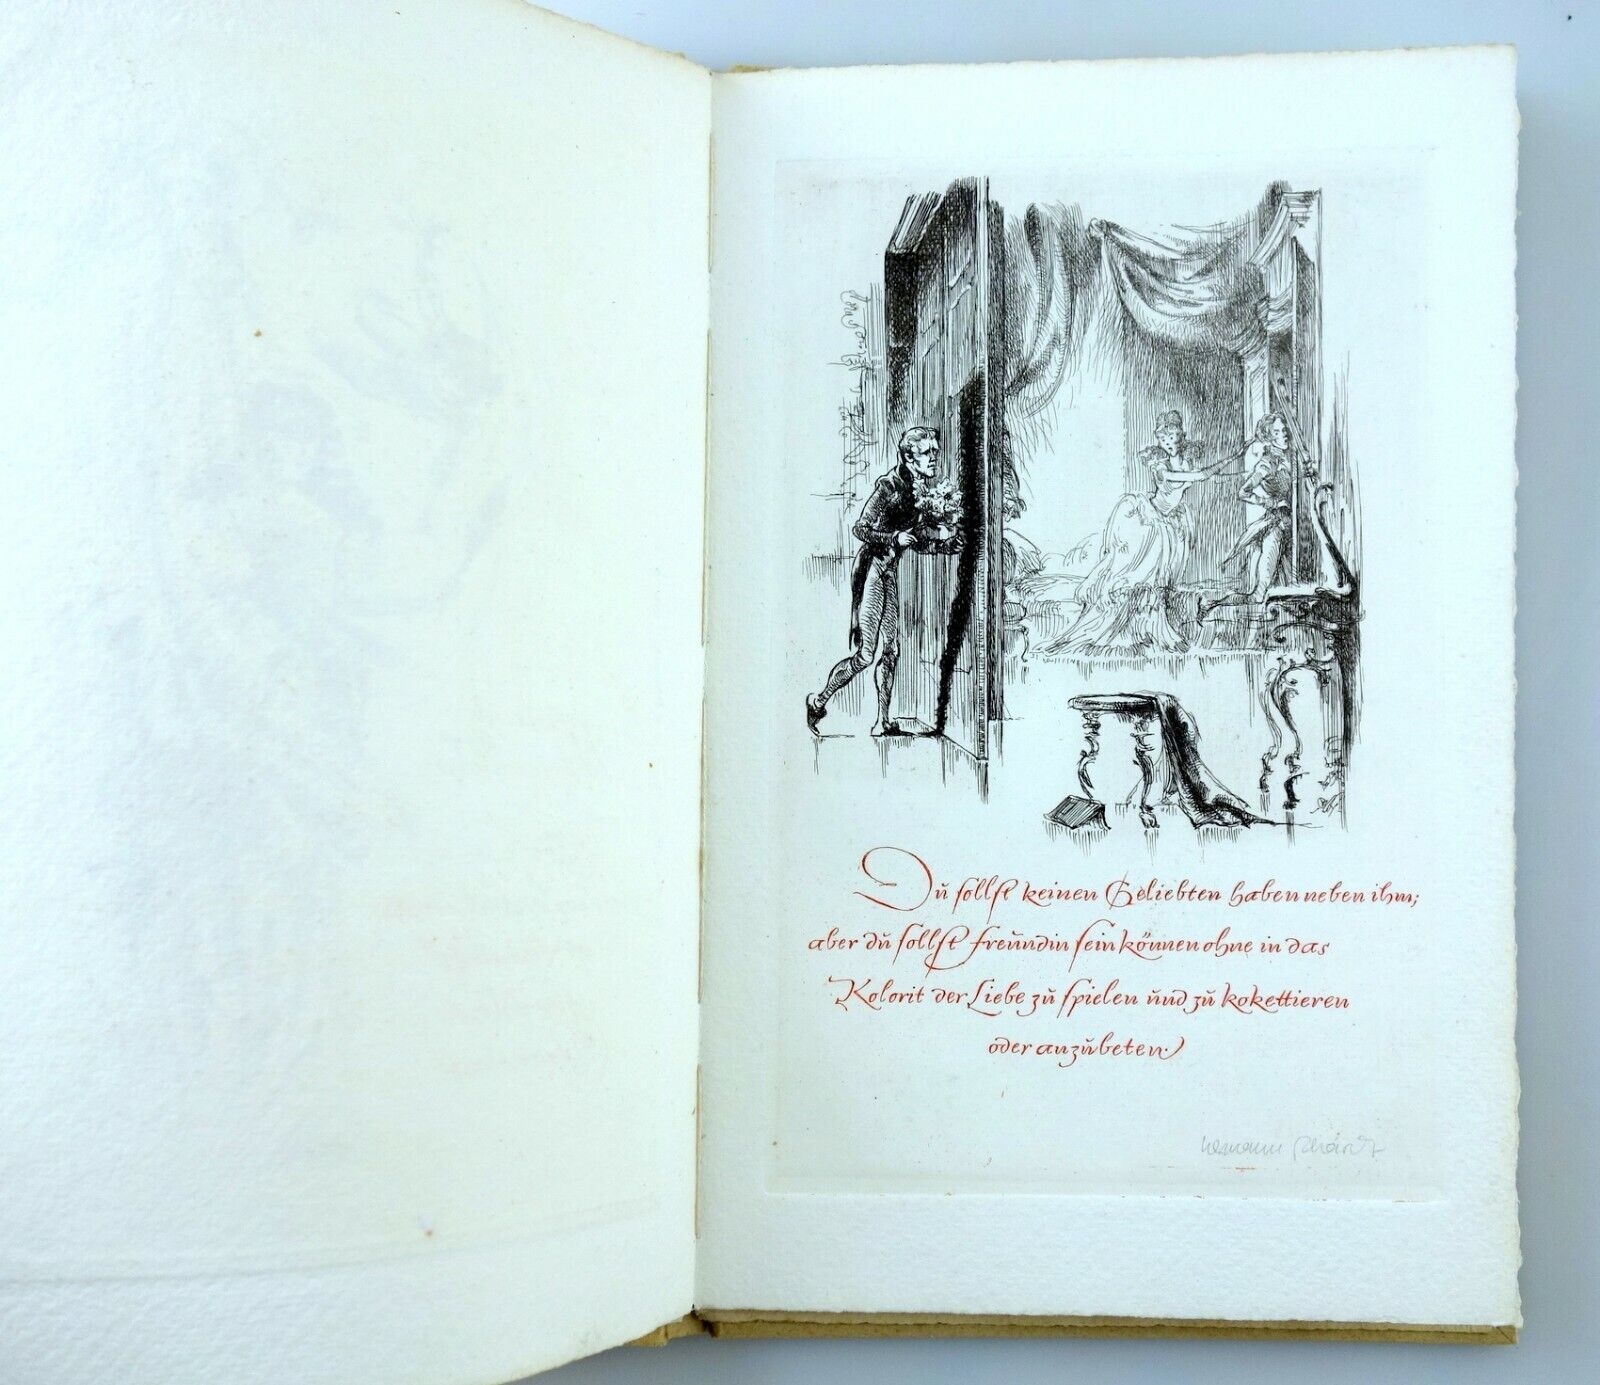 Du sollst keinen Geliebten haben neben ihm;
aber du sollst Freundin sein können ohne in das
Kolorit der Liebe zu spielen und zu kokettieren
oder anzubeten.
hermann